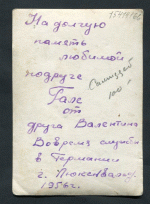 На долгую
память
любимой
подруге
Гале
от
друга Валентина
Вовремя службы
в Германии
г. Люксвальд
1956г.